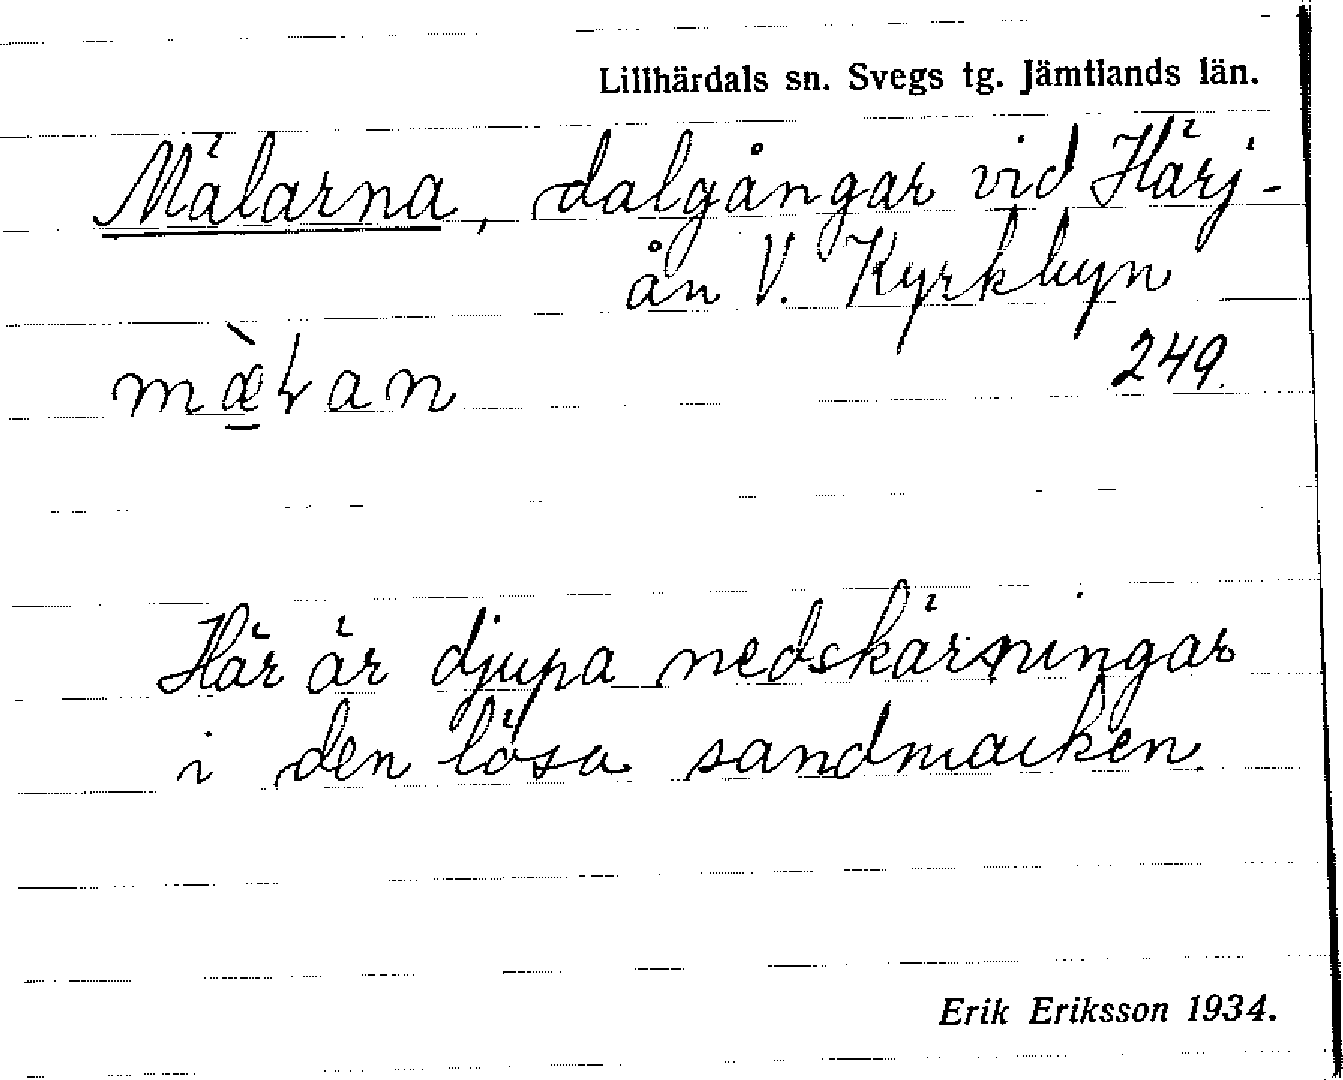 Lillhärdals sn. Svegs tg. Jämtlands län.
Mälarna, dalgångar vid Härj-
ån V. Kyrkbyn
249.
mæ̀ɽan
Här är djupa nedskärningar
i den lösa sandmarken.
Erik Eriksson 1934.